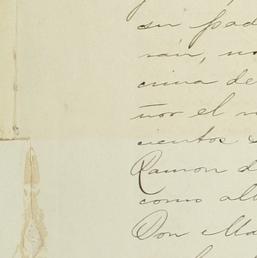 su pad
rán, no
cina de
ñor el m
cientos
Ramon d
como alb
Don Ma